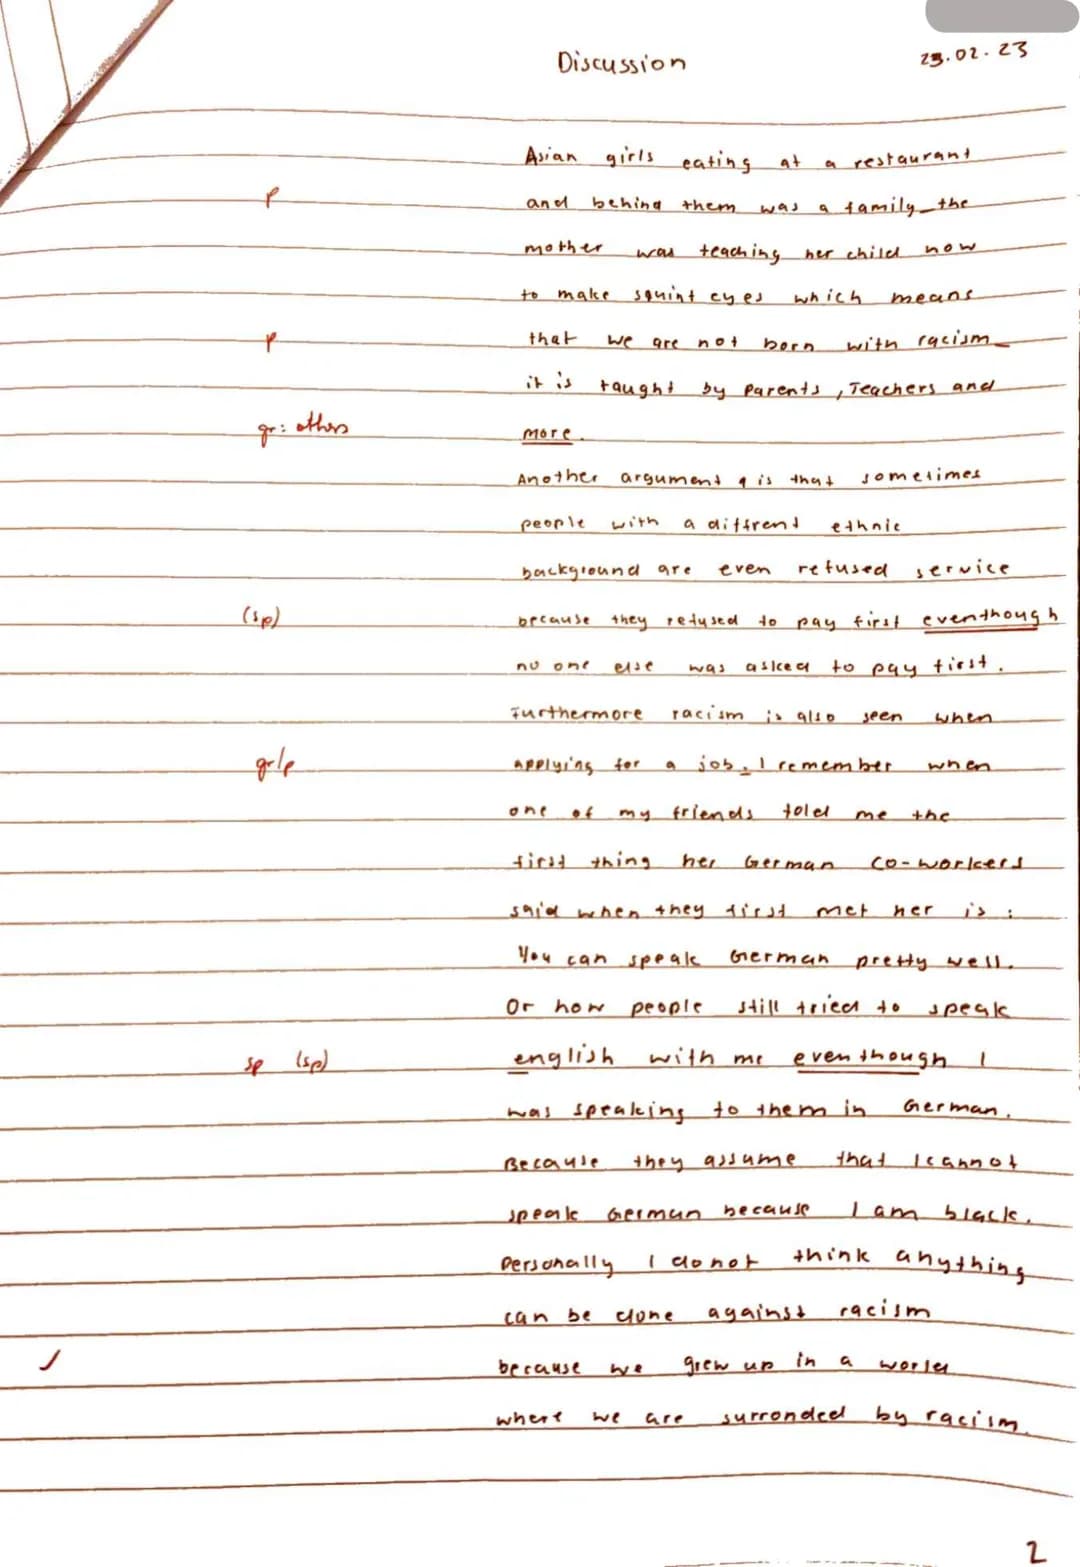 Discussion
23.02.23
Asian girls eating at a restaurant
p and behind them was a family the
mother was teaching her child how
to make squint eyes which means
p that we are not born with racism
it is taught by parents, Teachers and
gr: others more.
Another argument is that sometimes
people with a diffrent ethnic
background are even refused service
(sp) because they refused to pay first eventhough
no one else was asked to pay first.
Furthermore racism is also seen when
gr/p applying for a job. I remember when
one of my friends told me the
first thing her German co-workers
said when they first met her is :
You can speak German pretty well.
Or how people still tried to speak
sp (sp) english with me eventhough I
was speaking to them in German.
Because they assume that I cannot
speak German because I am black.
Personally I do not think anything
can be done against racism
because we grew up in a world
where we are surronded by racism.
2